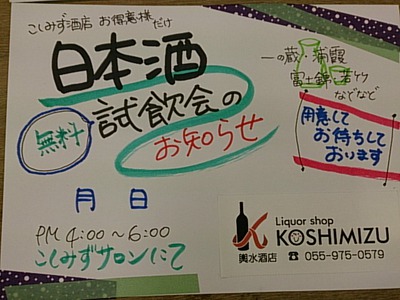 こしみず酒店 お得意様だけ
日本酒
試飲会の
お知らせ
無料
一の蔵・浦霞
富士錦・若竹
などなど
用意して
お待ちして
おります
月 日
PM 4:00〜6:00
こしみずサロンにて
Liquor shop
KOSHIMIZU
輿水酒店
☎ 055-975-0579